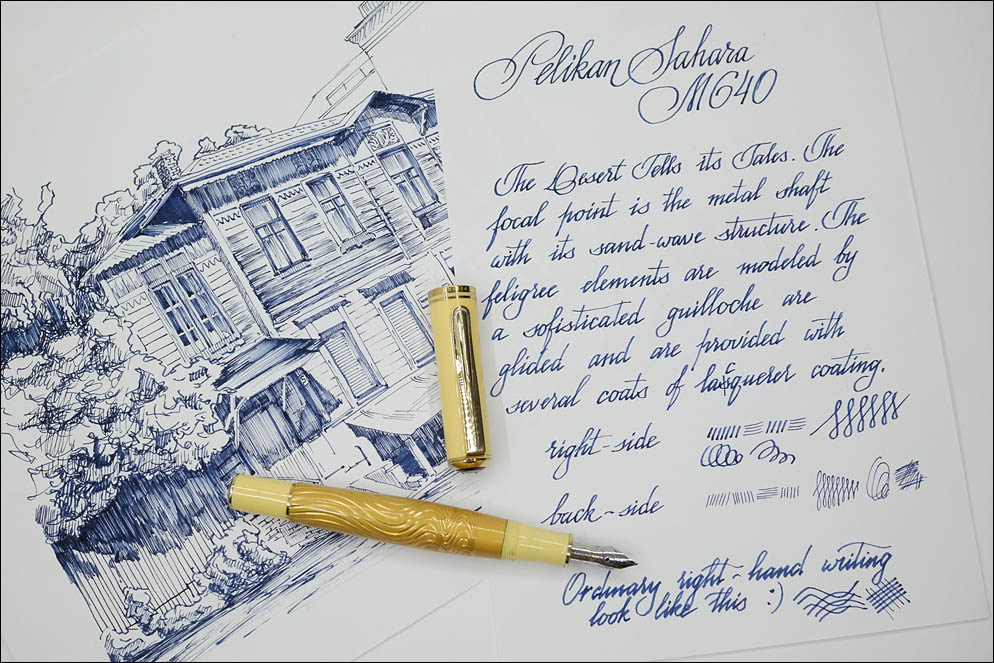 Pelikan Sahara
M640
The Desert Tells its Tales. The
focal point is the metal shaft
with its sand-wave structure. The
feligree elements are modeled by
a sofisticated guilloche are
glided and are provided with
several coats of lacquerer coating.
right-side
back-side
Ordinary right-hand writing
look like this :)